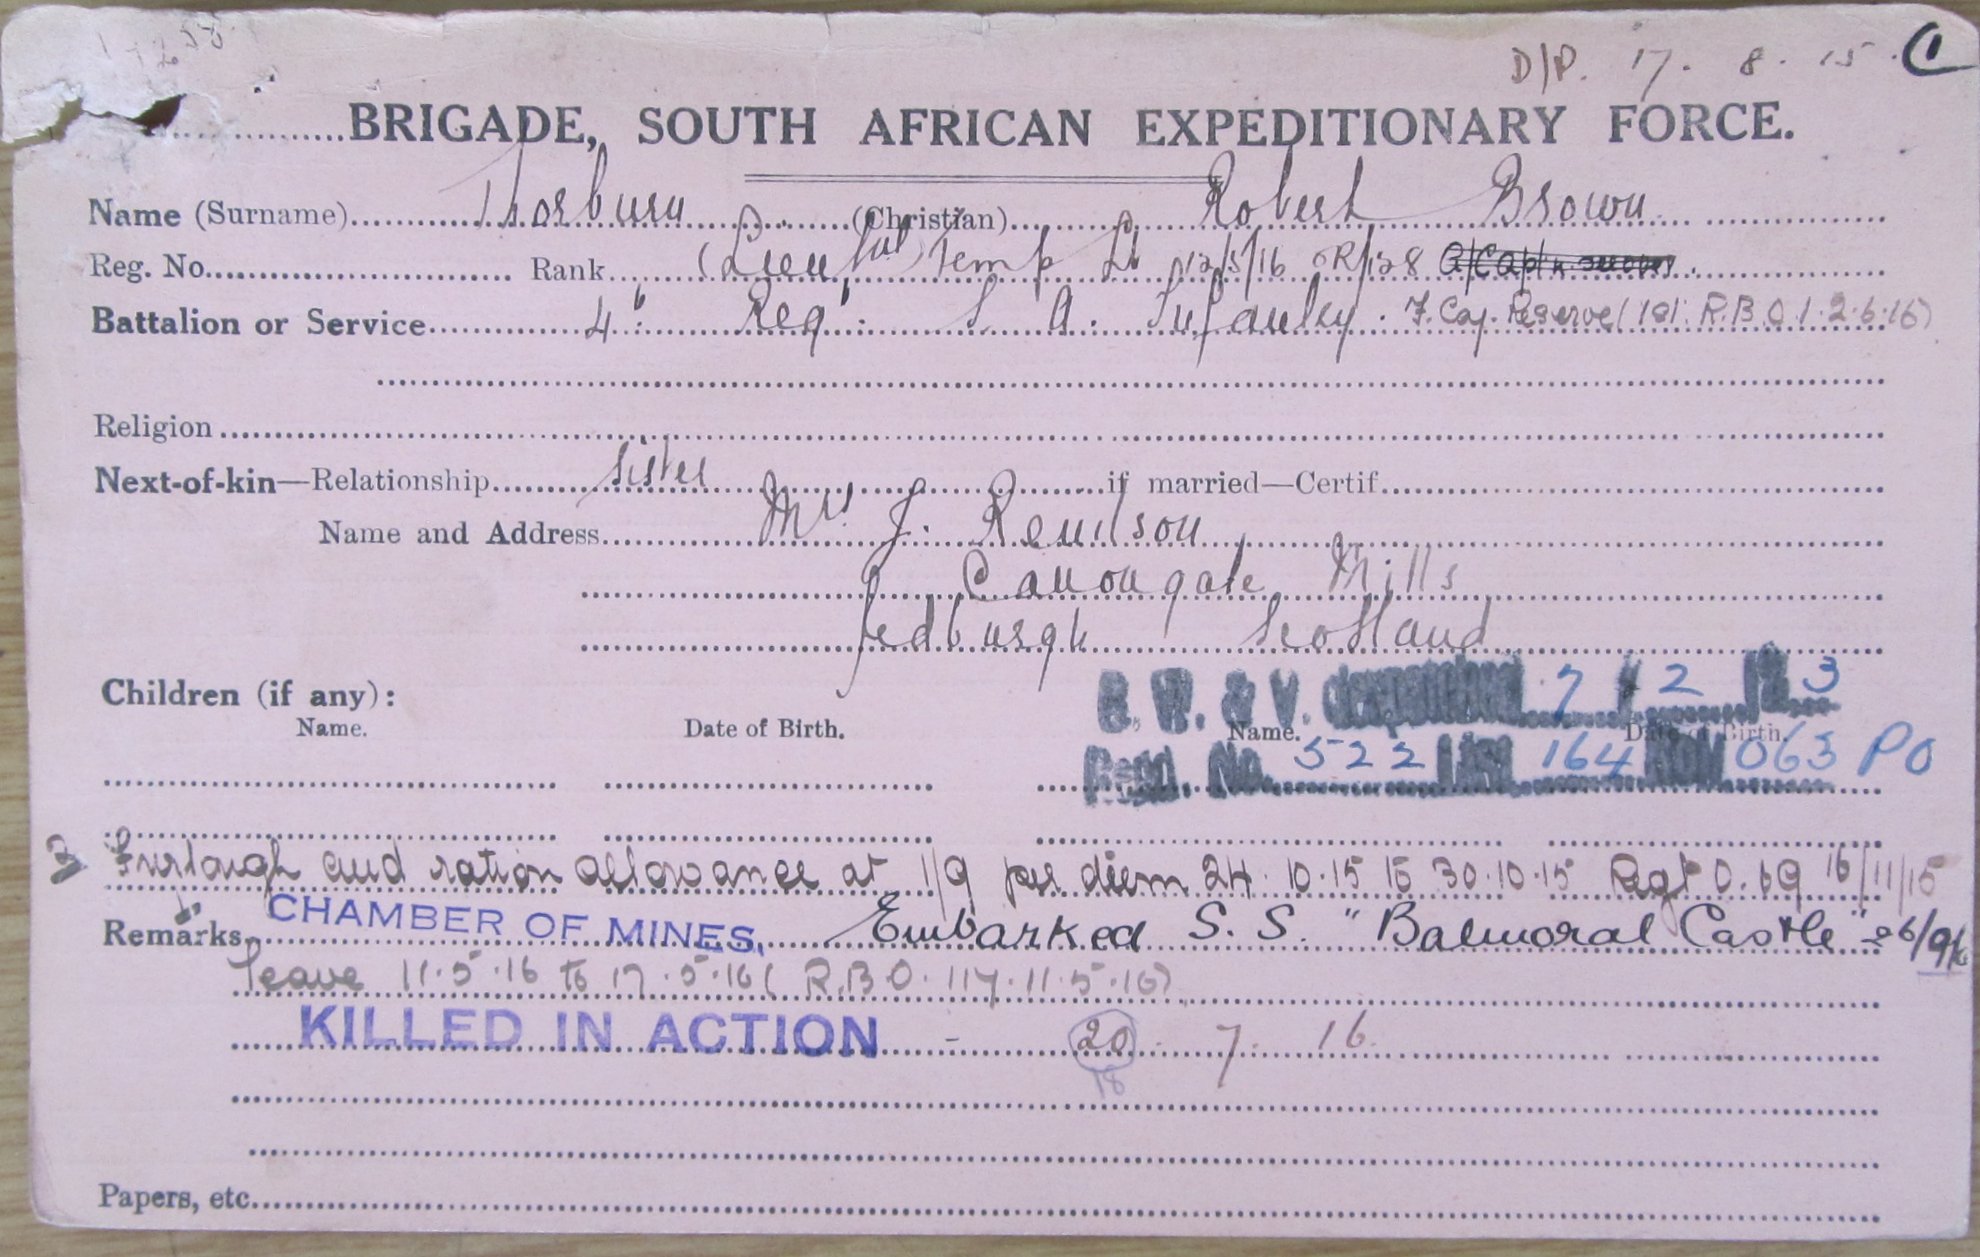 D/P. 17. 8. 15. C1
BRIGADE, SOUTH AFRICAN EXPEDITIONARY FORCE.
Name (Surname) Thorburn (Christian) Robert Brown
Reg. No. Rank (Lieut) Temp Lt 12/5/16 OR/128 A/Captn
Battalion or Service 4th Regt S. A. Infantry. F. Coy. Reserve (181. R.B.O. 1.2.6.16)
Religion
Next-of-kin—Relationship Sister if married—Certif.
Name and Address Mrs. J. Renilson
Canongate Mills
Jedburgh Scotland
Children (if any):
B. W. & V. despatched 7 / 2 / 23
Name. Date of Birth. Name. Date of Birth.
Regd. No. 522 List 164 063 PO
3 Furlough and ration allowance at 1/9 per diem 24.10.15 to 30.10.15 Regt O. 69 16/11/15
Remarks. CHAMBER OF MINES. Embarked S. S. "Balmoral Castle"
leave 11.5.16 to 17.5.16 (R.B.O. 117.11.5.16)
KILLED IN ACTION - 20. 7. 16.
18
Papers, etc.